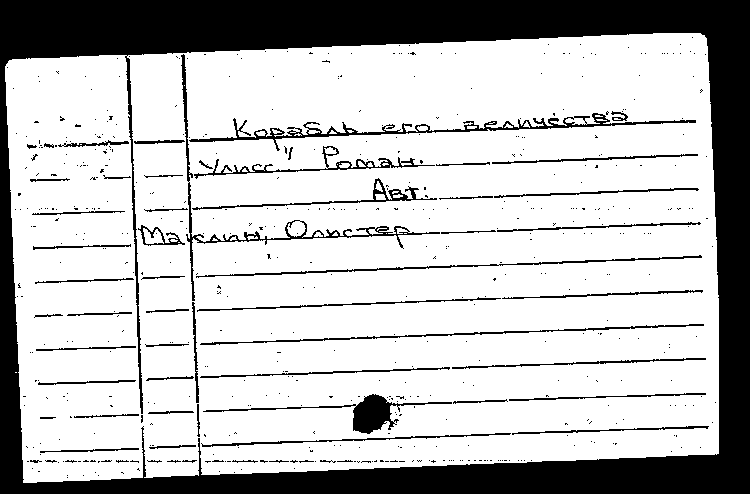 Корабль его величества
„Улисс" Роман.
Авт:
Маклин, Олистер